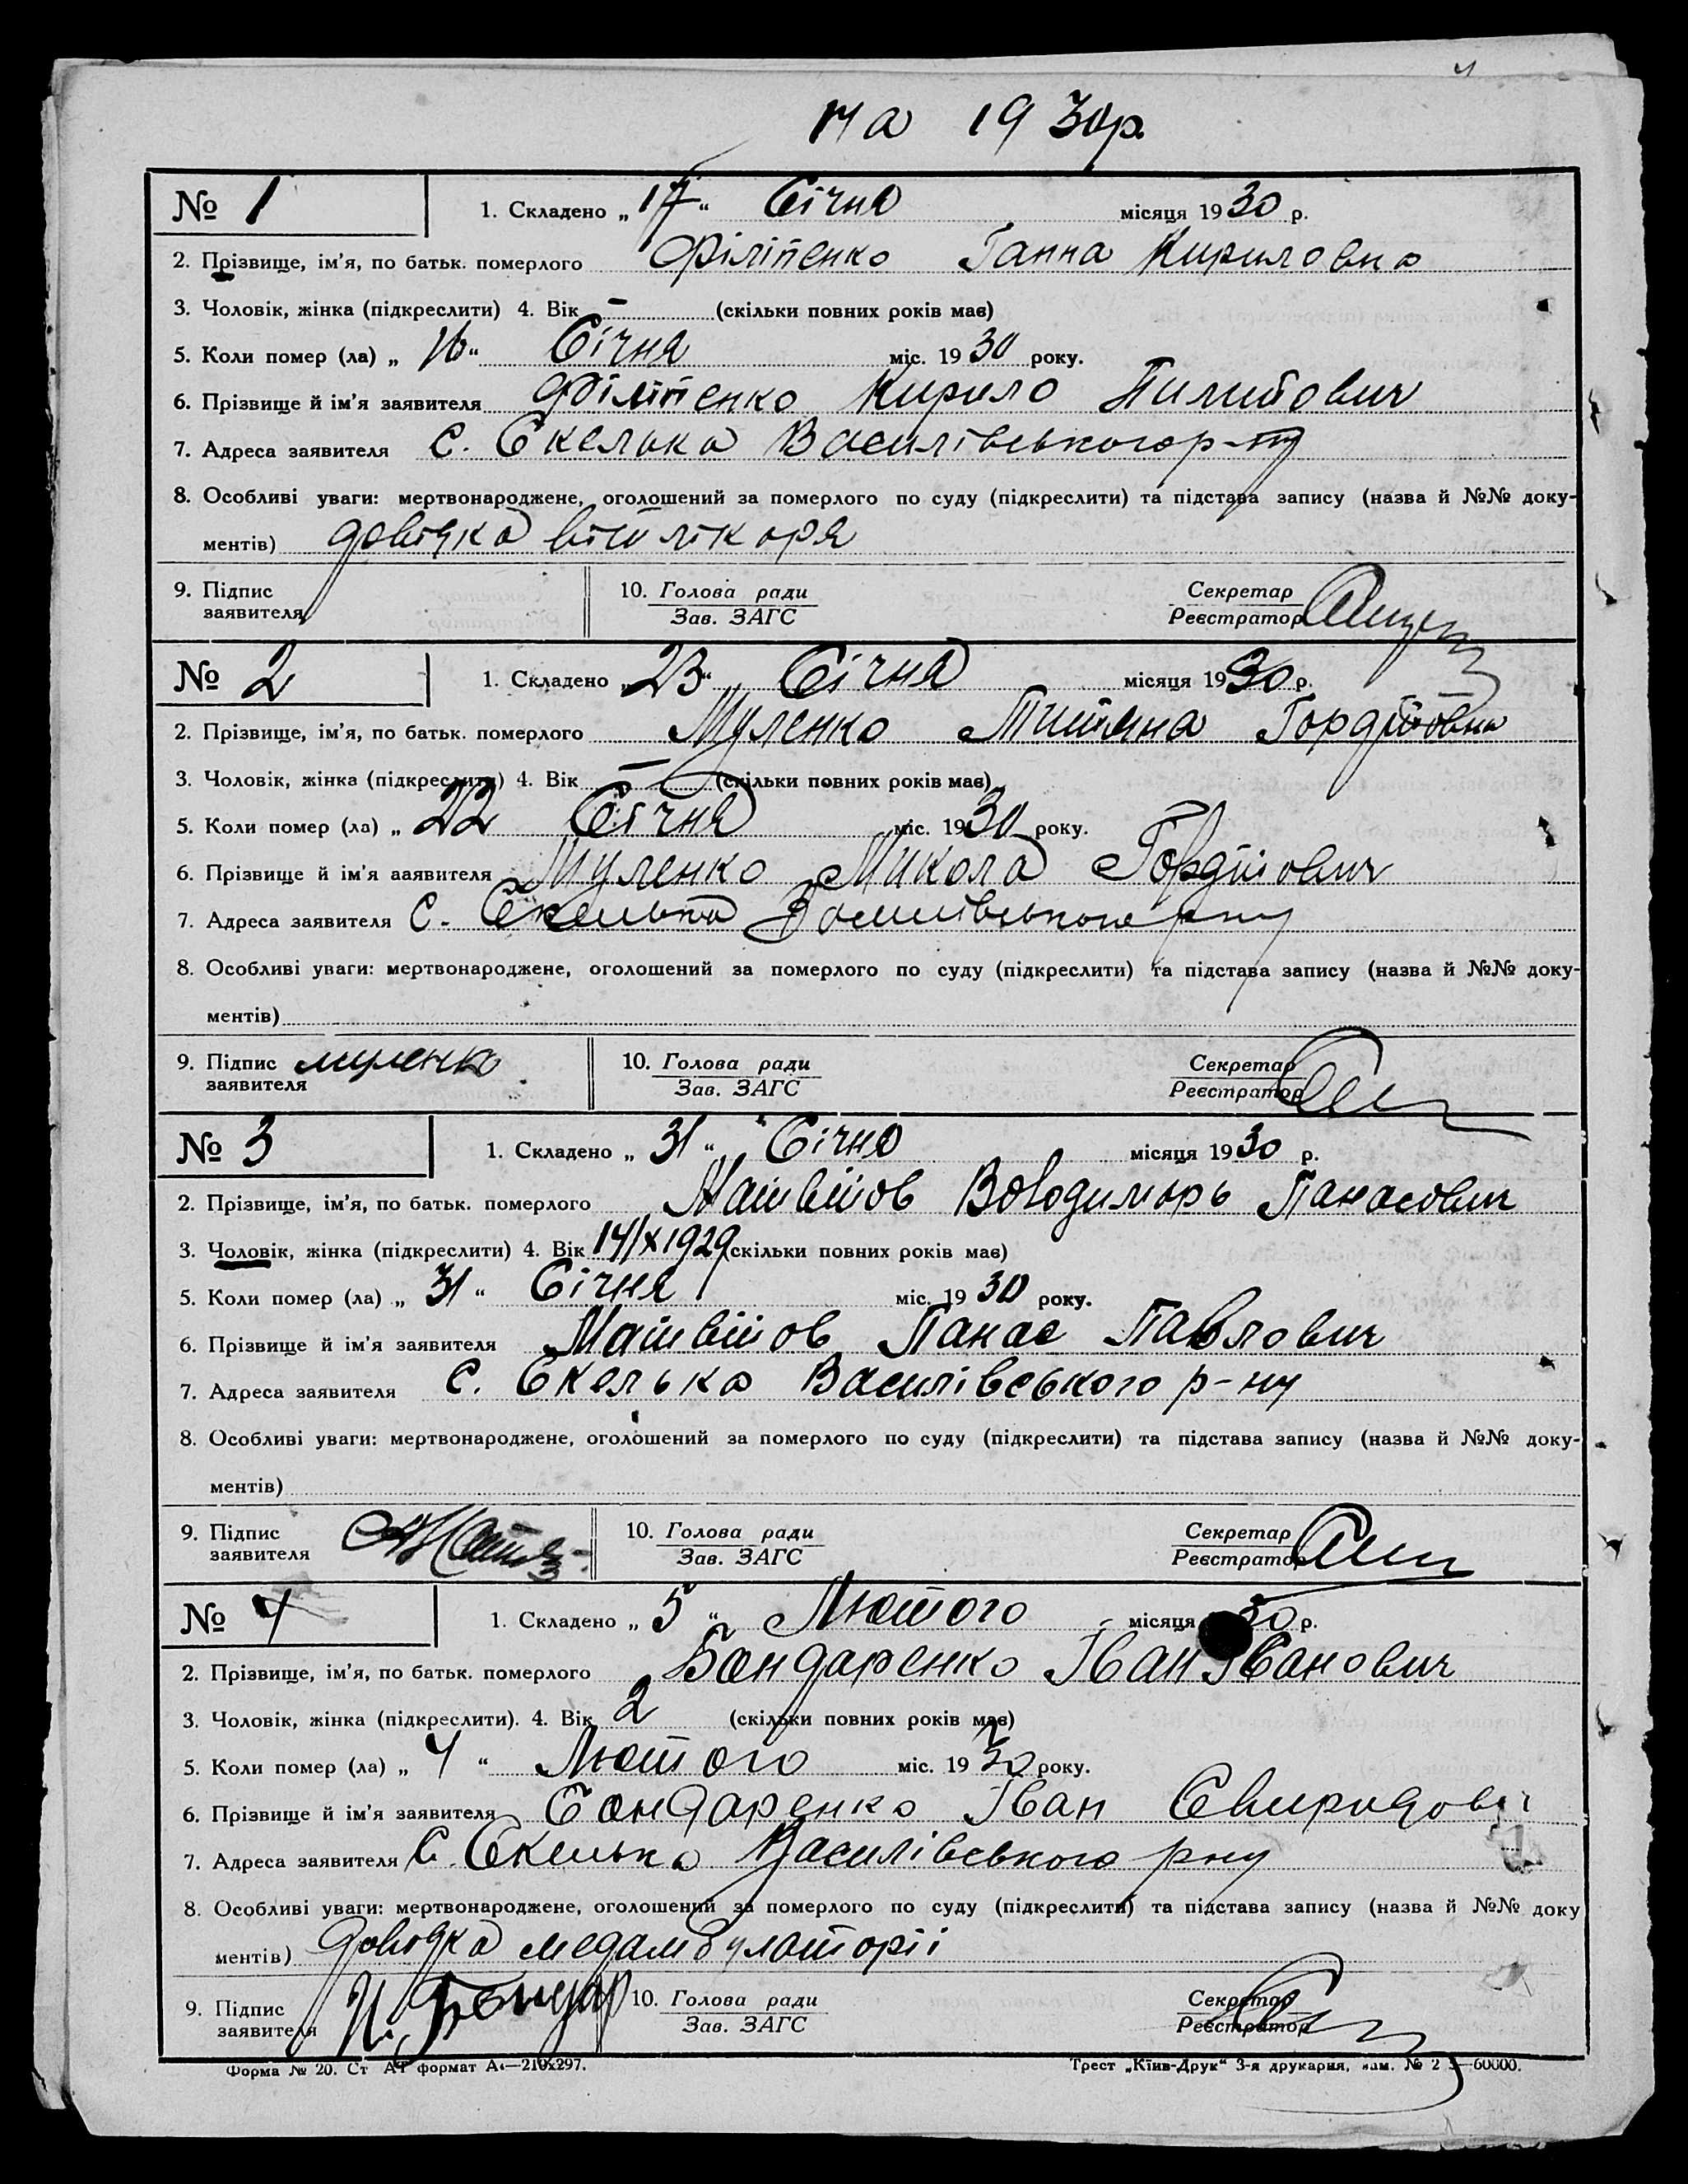 на 1930р.
№ 1 1. Складено „17“ Січня місяця 1930 р.
2. Прізвище, ім'я, по батьк. померлого Філіпенко Ганна Кириловна
3. Чоловік, жінка (підкреслити) 4. Вік – (скільки повних років має)
5. Коли помер (ла) „16“ Січня міс. 1930 року.
6. Прізвище й ім'я заявителя Філіпенко Кирило Пилипович
7. Адреса заявителя с. Скелька Василівського р-ну
8. Особливі уваги: мертвонароджене, оголошений за померлого по суду (підкреслити) та підстава запису (назва й №№ доку-
ментів) довідка від лікаря
9. Підпис заявителя 10. Голова ради Секретар
Зав. ЗАГС Реєстратор
№ 2 1. Складено „23“ Січня місяця 1930 р.
2. Прізвище, ім'я, по батьк. померлого Муленко Титяна Гордійовна
3. Чоловік, жінка (підкреслити) 4. Вік – (скільки повних років має)
5. Коли помер (ла) „22 Січня міс. 1930 року.
6. Прізвище й ім'я заявителя Муленко Микола Гордійович
7. Адреса заявителя с. Скелька Василівського рну
8. Особливі уваги: мертвонароджене, оголошений за померлого по суду (підкреслити) та підстава запису (назва й №№ доку-
ментів)
9. Підпис заявителя муленко 10. Голова ради Секретар
Зав. ЗАГС Реєстратор
№ 3 1. Складено „31“ Січня місяця 1930 р.
2. Прізвище, ім'я, по батьк. померлого Матвійов Володимирь Панасович
3. Чоловік, жінка (підкреслити) 4. Вік 14/X 1929 (скільки повних років має)
5. Коли помер (ла) „31“ Січня міс. 1930 року.
6. Прізвище й ім'я заявителя Матвійов Панас Павлович
7. Адреса заявителя с. Скелька Василівського р-ну
8. Особливі уваги: мертвонароджене, оголошений за померлого по суду (підкреслити) та підстава запису (назва й №№ доку-
ментів)
9. Підпис заявителя 10. Голова ради Секретар
Зав. ЗАГС Реєстратор
№ 4 1. Складено „5“ Лютого місяця 30 р.
2. Прізвище, ім'я, по батьк. померлого Бондаренко Іван Іванович
3. Чоловік, жінка (підкреслити). 4. Вік 2 (скільки повних років має)
5. Коли помер (ла) „4“ Лютого міс. 1930 року.
6. Прізвище й ім'я заявителя Бондаренко Іван Свиридович
7. Адреса заявителя с. Скелька Василівського рну
8. Особливі уваги: мертвонароджене, оголошений за померлого по суду (підкреслити) та підстава запису (назва й №№ доку
ментів) Довідка медамбулаторіі
9. Підпис заявителя И. Бондар 10. Голова ради Секретар
Зав. ЗАГС Реєстратор
Форма № 20. Ст формат А4—210х297. Трест „Київ-Друк“ 3-я друкарня, зам. № 60000.